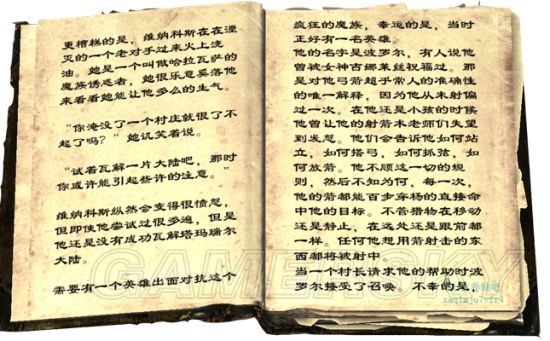 更糟糕的是，维纳科斯在在湮
灭的一个老对手过来火上浇
油。她是一个叫做哈拉瓦萨的
魔族诱惑者，她很乐意奚落他
来看看她能让他多么的生气。
“你淹没了一个村庄就很了不
起了吗？”她讥笑着说。
“试着瓦解一片大陆吧，那时
你或许能引起些许的注意。”
维纳科斯纵然会变得很愤怒，
但即使他尝试过很多遍，但是
他还是没有成功瓦解塔玛瑞尔
大陆。
需要有一个英雄出面对抗这个
疯狂的魔族，幸运的是，当时
正好有一名英雄。
他的名字是波罗尔，有人说他
曾被女神吉娜莱丝祝福过。那
是对他弓箭超乎常人的准确性
的唯一解释，因为他从未射偏
过一次。在他还是小孩的时候
他曾让他的射箭术老师们失望
到发怒。他们会告诉他如何站
立，如何搭弓，如何抓弦，如
何放箭。他不顾这一切的规
则，然后不知为何，每一次，
他的箭都能百步穿杨的直接命
中他的目标。不管猎物在移动
还是静止，在远处还是跟前都
一样。任何他想用箭射击的东
西都将被射中
当一个村长请求他的帮助时波
罗尔接受了召唤。不幸的是，
GAMERSKY
zaq1mju7vfr4